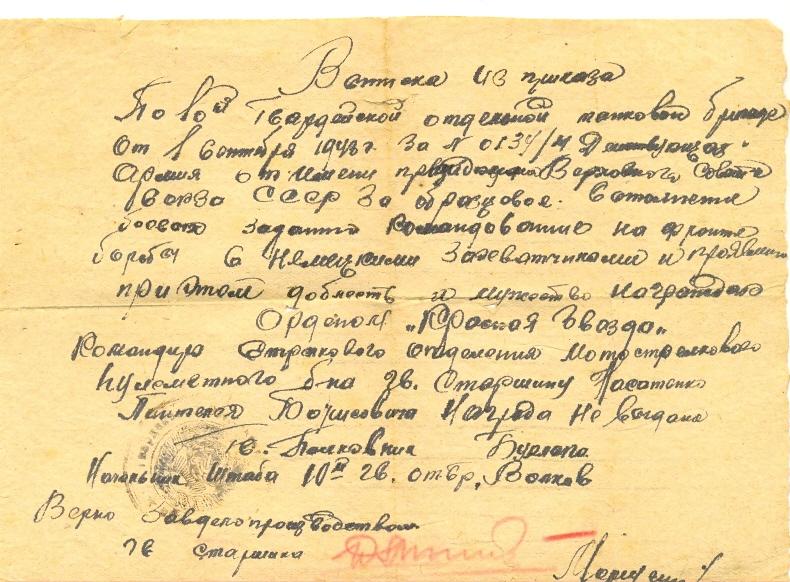 Выписка из приказа
По 10й Гвардейской отдельной танковой бригаде
от 1 Сентября 1943 г. За № 0134/н Действующая
Армия от имени президиума Верховного Совета
Союза СССР За образцовое
боевого задания командования на фронте
борьбы с немецкими захватчиками и
при этом доблесть и мужество награждаю
Орденом „Красная Звезда"
Командира Стрелкового отделения Мотострелкового
пулеметного б-на гв. Старшину
Награда не выдана
Полковник Бурлыга
Начальник Штаба 10й гв. отбр. Волков
Верно Завделопроизводством
гв старшина